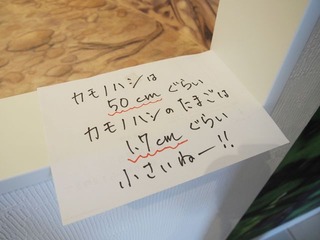 カモノハシは
50cmぐらい
カモノハシのたまごは
1.7cmぐらい
小さいねー!!